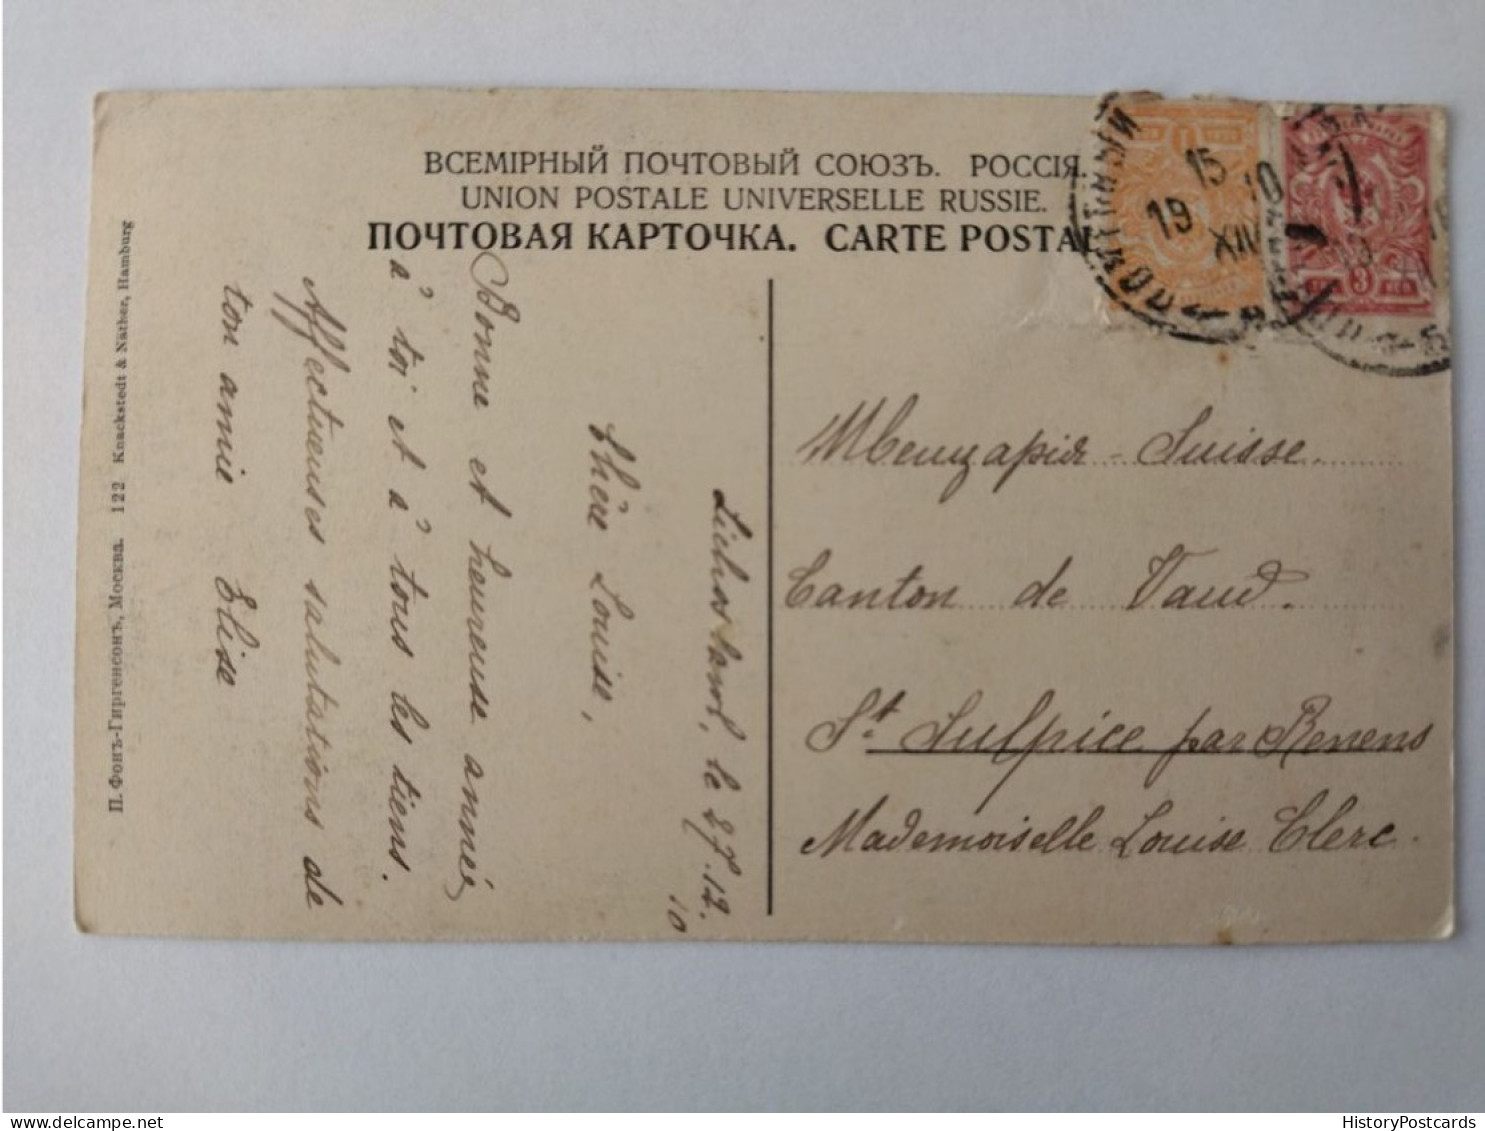 ВСЕМІРНЫЙ ПОЧТОВЫЙ СОЮЗЪ. РОССІЯ.
UNION POSTALE UNIVERSELLE RUSSIE.
ПОЧТОВАЯ КАРТОЧКА. CARTE POSTAL
15
10
19
XII
1
3
le 27.12.
10
Chère Louise,
Bonne et heureuse année
à toi et à tous les tiens.
Affectueuses salutations de
ton amie Elise
П. Фонъ-Гиргенсонъ, Москва. 122 Knackstedt & Näther, Hamburg
Швейцарія - Suisse.
Canton de Vaud.
St. Sulpice par Renens
Mademoiselle Louise Clerc.
HistoryPostcards